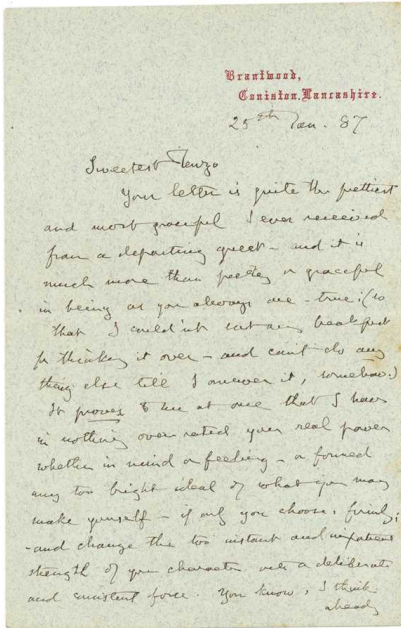 Brantwood,
Coniston, Lancashire.
25th Jan. 87
Sweetest
Your letter is quite the prettiest
and most graceful I ever received
from a departing guest - and it is
much more than pretty or graceful
in being as you always are - true: (so
that I couldn't eat any breakfast
for thinking it over - and can't do any
thing else till I answer it, somehow.)
It proves to me at once that I have
in nothing over rated your real power
whether in mind or feeling - or formed
any too bright ideal of what you may
make yourself - if only you choose, firmly;
- and change the too instant and impatient
strength of your character into a deliberate
and consistent force. You know, I think
already